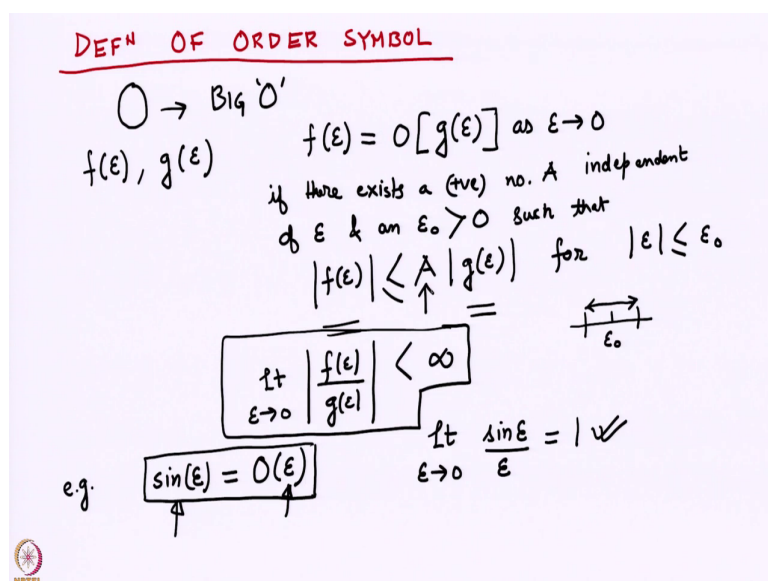 DEFN OF ORDER SYMBOL
O → BIG 'O'
f(ε), g(ε)
f(ε) = O[g(ε)] as ε→0
if there exists a (+ve) no. A independent
of ε & an ε₀ > 0 such that
|f(ε)| ≤ A |g(ε)| for |ε| ≤ ε₀
ε₀
lt ε→0 |f(ε)/g(ε)| < ∞
lt ε→0 sinε/ε = 1
e.g. sin(ε) = O(ε)
NPTEL